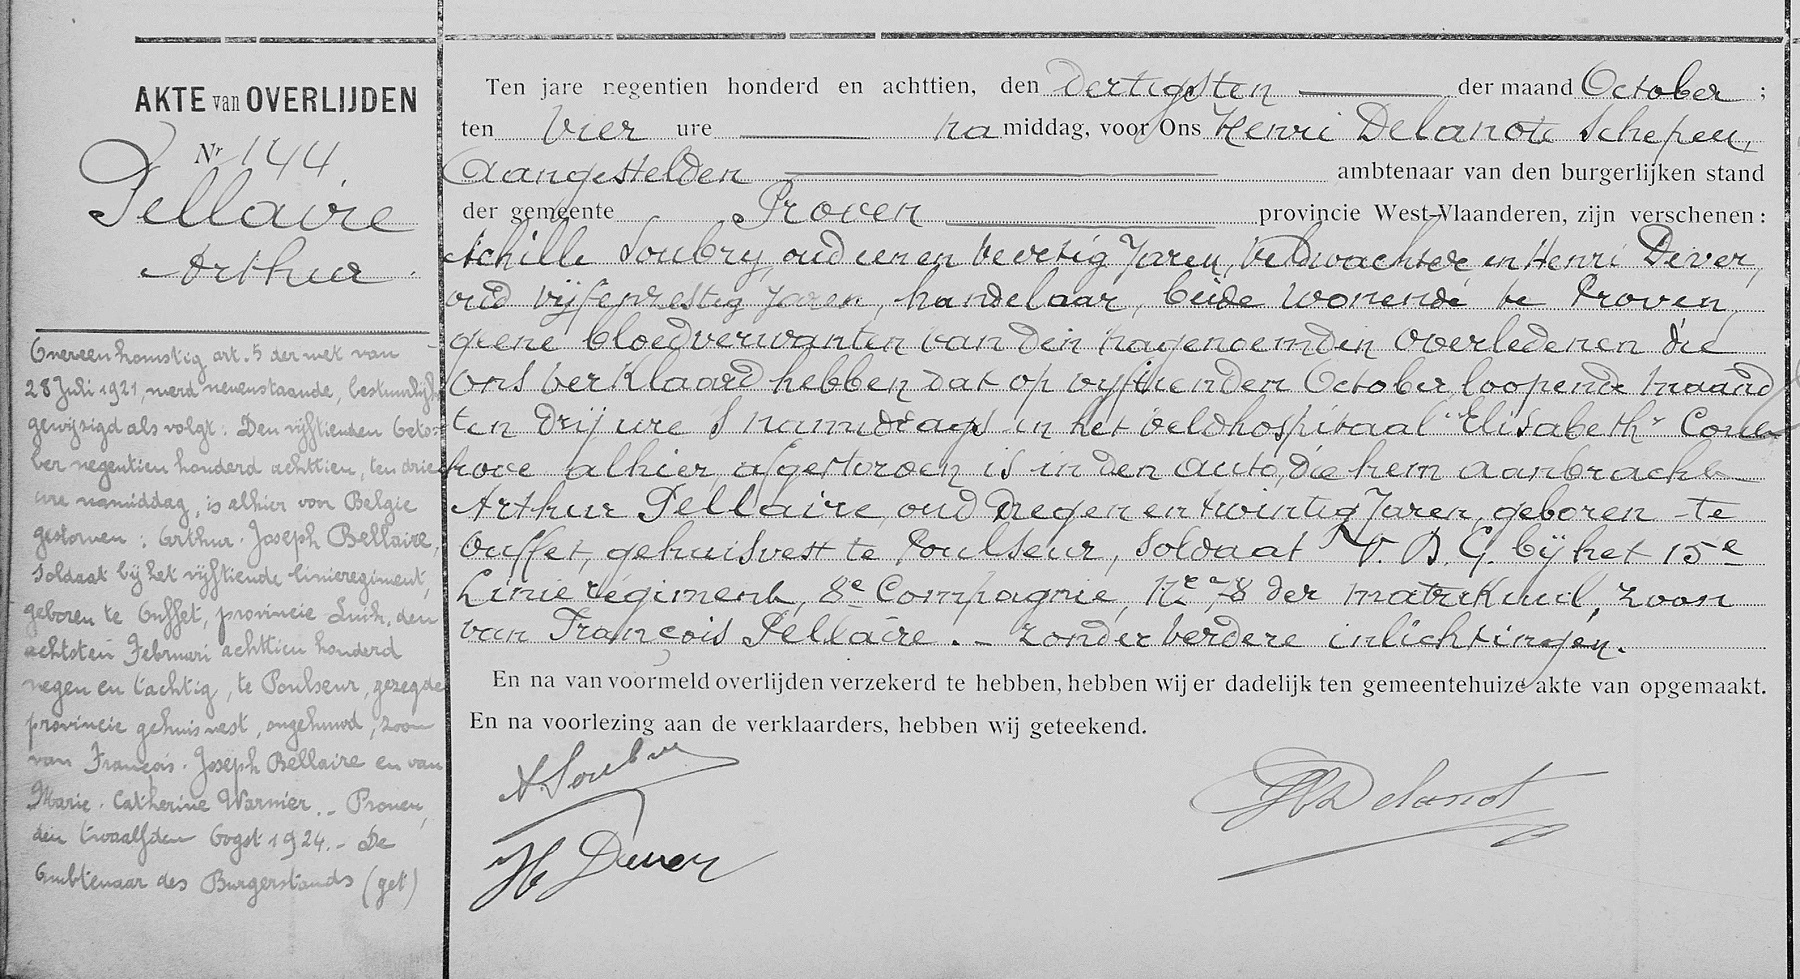 AKTE van OVERLIJDEN
Nr 144
Pellaire
Arthur.
Overeenkomstig art. 5 der wet van
28 Juli 1921, werd nevenstaande, bestuurlijk
gewijzigd als volgt: Den vijftienden Octo-
ber negentien honderd achttien, ten drie
ure namiddag, is alhier voor Belgie
gestorven: Arthur-Joseph Bellaire,
soldaat bij het vijftiende linieregiment,
geboren te Ouffet, provincie Luik, den
achtsten Februari achttien honderd
negen en tachtig, te Poulseur, gezegde
provincie gehuisvest, ongehuwd, zoon
van François-Joseph Bellaire en van
Marie-Catherine Warnier.- Proven,
den twaalfden Oogst 1924.- De
Ambtenaar des Burgerstands (get)
Ten jare negentien honderd en achttien, den dertigsten der maand October ;
ten vier ure na middag, voor Ons Henri Delanote Schepen,
Aangestelden ambtenaar van den burgerlijken stand
der gemeente Proven provincie West-Vlaanderen, zijn verschenen :
Achille Soubry, oud een en veertig Jaren, veldwachter en Henri Dever,
oud vijfenzestig Jaren, handelaar, beide wonende te Proven,
geene bloedverwanten van den nagenoemden overledenen die
ons verklaard hebben dat op vijftienden October, loopende maand
ten drij ure s namiddags in het veldhospitaal "Elisabeth" Cout
hove alhier afgestorven is in den auto, die hem aanbracht
Arthur Pellaire, oud negen en twintig Jaren, geboren te
Ouffet, gehuisvest te Poulseur, soldaat V. D. G. bij het 15e
Linie regiment, 8e Compagnie, der matrikuul, zoon
van François Pellaire.- zonder verdere inlichtingen.
En na van voormeld overlijden verzekerd te hebben, hebben wij er dadelijk ten gemeentehuize akte van opgemaakt.
En na voorlezing aan de verklaarders, hebben wij geteekend.
A. Soubry
H. Dever
H Delanot